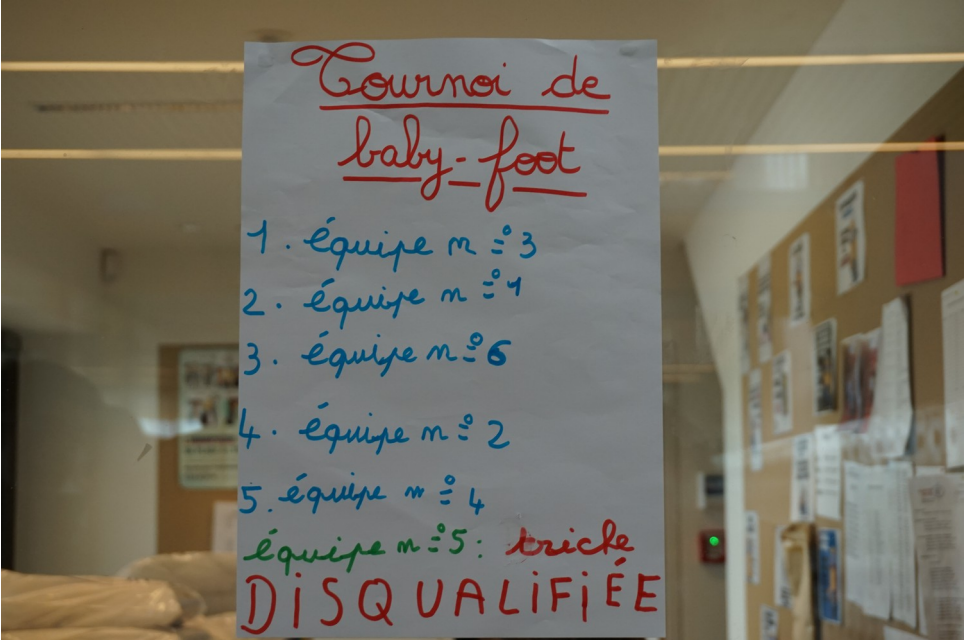 Tournoi de
baby-foot
1. équipe n°3
2. équipe n°1
3. équipe n°6
4. équipe n°2
5. équipe n°4
équipe n°5: triche
DiSQUALiFiÉE